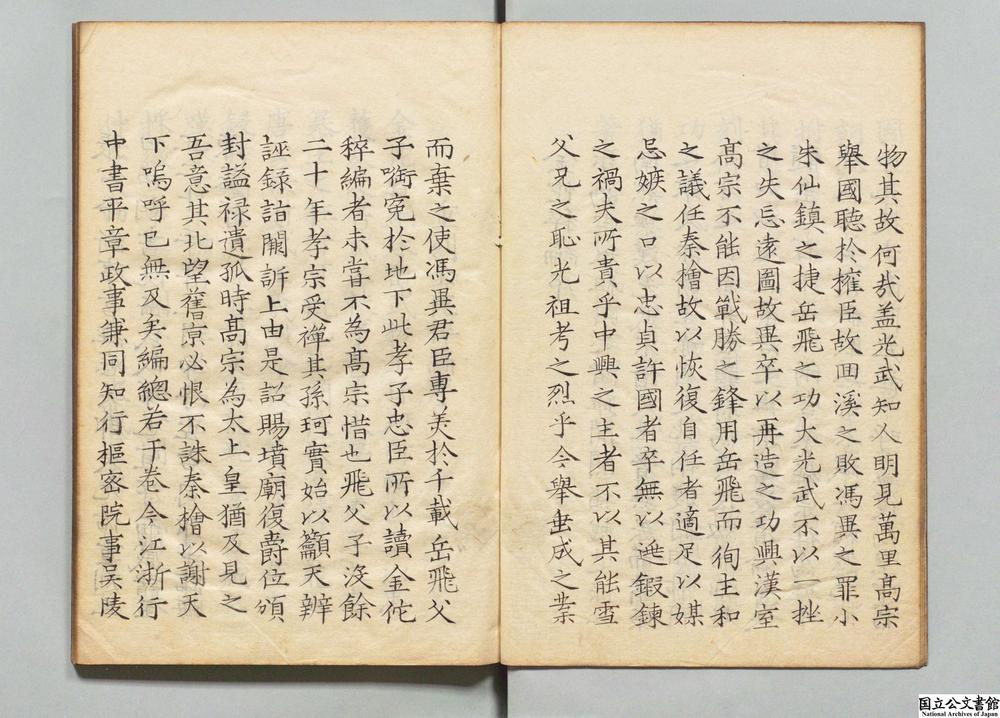 物其故何哉盖光武知人明見萬里髙宗
舉國聽於權臣故囬溪之敗馮異之罪小
朱仙鎮之捷岳飛之功大光武不以一挫
之失忘逺圖故異卒以再造之功興漢室
髙宗不能因戰勝之鋒用岳飛而徇主和
之議任秦檜故以恢復自任者適足以媒
忌嫉之口以忠貞許國者卒無以逃鍜鍊
之禍夫所貴乎中興之主者不以其能雪
父兄之恥光祖考之烈乎今舉垂成之業
而棄之使馮異君臣專美於千載岳飛父
子啣寃於地下此孝子忠臣所以讀金佗
稡編者未甞不為髙宗惜也飛父子没餘
二十年孝宗受禪其孫珂實始以籲天辨
誣録詣闕訴上由是詔賜墳廟復爵位頒
封謚禄遺孤時髙宗為太上皇猶及見之
吾意其北望舊京必恨不誅秦檜以謝天
下嗚呼已無及矣編總若干卷今江浙行
中書平章政事兼同知行樞宻院事吴陵
国立公文書館
National Archives of Japan